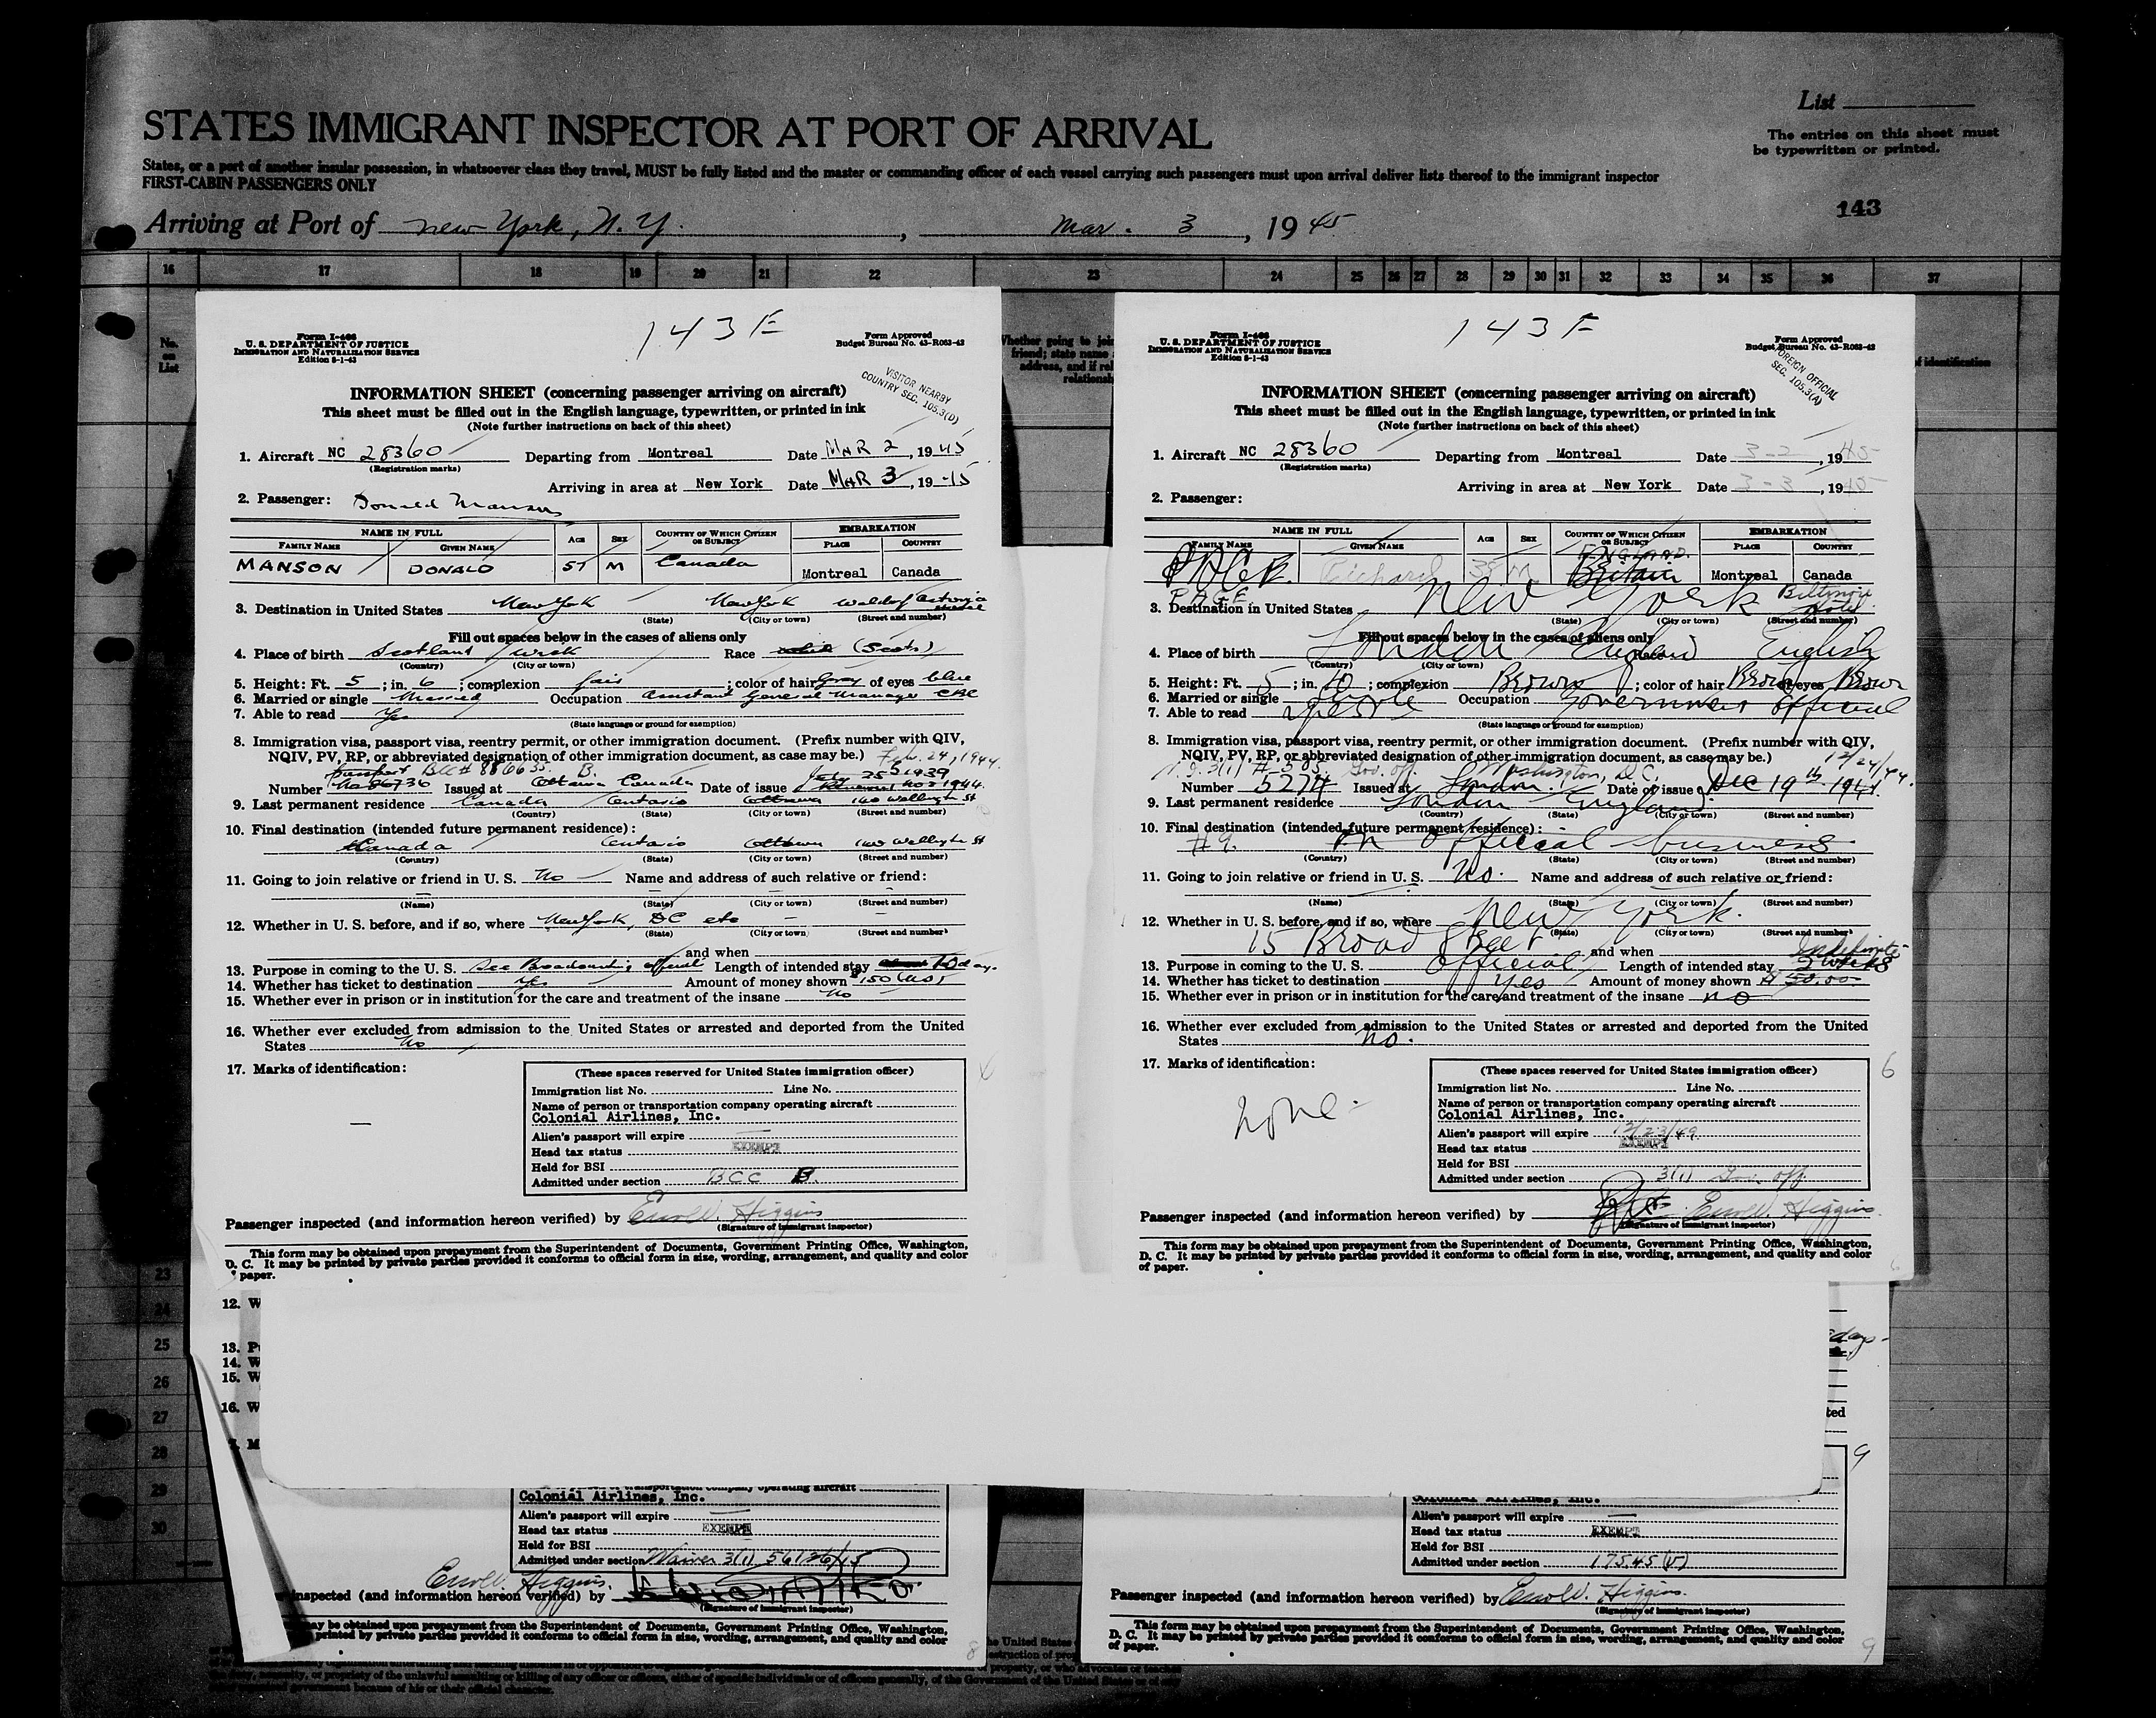 List
STATES IMMIGRANT INSPECTOR AT PORT OF ARRIVAL
The entries on this sheet must
be typewritten or printed.
States, or a port of another insular possession, in whatsoever class they travel, MUST be fully listed and the master or commanding officer of each vessel carrying such passengers must upon arrival deliver lists thereof to the immigrant inspector
FIRST-CABIN PASSENGERS ONLY
143
Arriving at Port of New York, N. Y. , Mar. 3 , 19 45
16 17 18 19 20 21 22 23 24 25 26 27 28 29 30 31 32 33 34 35 36 37
No. on List
143 F
Form I-466
U. S. DEPARTMENT OF JUSTICE
IMMIGRATION AND NATURALIZATION SERVICE
Edition 8-1-43
Form Approved
Budget Bureau No. 43-R063-43
VISITOR NEARBY
COUNTRY SEC. 105.3(D)
INFORMATION SHEET (concerning passenger arriving on aircraft)
This sheet must be filled out in the English language, typewritten, or printed in ink
(Note further instructions on back of this sheet)
1. Aircraft NC 28360 Departing from Montreal Date MAR 2, 1945
(Registration marks)
Arriving in area at New York Date MAR 3, 19 45
2. Passenger: Donald Manson
NAME IN FULL AGE SEX COUNTRY OF WHICH CITIZEN OR SUBJECT EMBARKATION
FAMILY NAME GIVEN NAME PLACE COUNTRY
MANSON DONALD 57 M Canada Montreal Canada
3. Destination in United States New York New York Waldorf Astoria
(State) (City or town) (Street and number)
Fill out spaces below in the cases of aliens only
4. Place of birth Scotland Wick Race (Scots)
(Country) (City or town)
5. Height: Ft. 5 ; in. 6 ; complexion fair ; color of hair Gray of eyes blue
6. Married or single Married Occupation Assistant General Manager CBC
7. Able to read Yes
(State language or ground for exemption)
8. Immigration visa, passport visa, reentry permit, or other immigration document. (Prefix number with QIV,
NQIV, PV, RP, or abbreviated designation of other immigration document, as case may be.) Feb. 24, 1944.
Passport BCC#
Number No 86736 Issued at Ottawa Canada Date of issue 1939
9. Last permanent residence Canada Ontario Ottawa 140 Wellington St
(Country) (State) (City or town) (Street and number)
10. Final destination (intended future permanent residence):
Canada Ontario Ottawa 140 Wellington St
(Country) (State) (City or town) (Street and number)
11. Going to join relative or friend in U. S. No Name and address of such relative or friend:
(Name) (State) (City or town) (Street and number)
12. Whether in U. S. before, and if so, where New York, DC etc
(State) (City or town) (Street and number)
and when
13. Purpose in coming to the U. S. See Broadcasting official Length of intended stay 10 days
14. Whether has ticket to destination Yes Amount of money shown $150
15. Whether ever in prison or in institution for the care and treatment of the insane No
16. Whether ever excluded from admission to the United States or arrested and deported from the United
States No
17. Marks of identification:
(These spaces reserved for United States immigration officer)
Immigration list No. Line No.
Name of person or transportation company operating aircraft
Colonial Airlines, Inc.
Alien's passport will expire
Head tax status EXEMPT
Held for BSI
Admitted under section BCC B.
Passenger inspected (and information hereon verified) by Errol D. Higgins
(Signature of immigrant inspector)
This form may be obtained upon prepayment from the Superintendent of Documents, Government Printing Office, Washington,
D. C. It may be printed by private parties provided it conforms to official form in size, wording, arrangement, and quality and color
paper.
143 F
Form I-466
U. S. DEPARTMENT OF JUSTICE
IMMIGRATION AND NATURALIZATION SERVICE
Edition 8-1-43
Form Approved
Budget Bureau No. 43-R063-43
FOREIGN OFFICIAL
SEC. 105.3(A)
INFORMATION SHEET (concerning passenger arriving on aircraft)
This sheet must be filled out in the English language, typewritten, or printed in ink
(Note further instructions on back of this sheet)
1. Aircraft NC 28360 Departing from Montreal Date 3-2, 1945
(Registration marks)
Arriving in area at New York Date 3-3, 1945
2. Passenger:
NAME IN FULL AGE SEX COUNTRY OF WHICH CITIZEN OR SUBJECT EMBARKATION
FAMILY NAME GIVEN NAME PLACE COUNTRY
ENGLAND
Richard 35 M Britain Montreal Canada
PAGE
3. Destination in United States New York Biltmore Hotel
(State) (City or town) (Street and number)
Fill out spaces below in the cases of aliens only
4. Place of birth London England Race English
(Country) (City or town)
5. Height: Ft. 5 ; in. 10 ; complexion Brown ; color of hair Brown of eyes Brown
6. Married or single Single Occupation Government official
7. Able to read yes
(State language or ground for exemption)
8. Immigration visa, passport visa, reentry permit, or other immigration document. (Prefix number with QIV,
NQIV, PV, RP, or abbreviated designation of other immigration document, as case may be.) 12/24/44.
3(1) Gov. off. Washington, D.C.
Number 5274 Issued at London Date of issue Dec 19th 1944
9. Last permanent residence London England
(Country) (State) (City or town) (Street and number)
10. Final destination (intended future permanent residence):
#9. on official business
(Country) (State) (City or town) (Street and number)
11. Going to join relative or friend in U. S. No. Name and address of such relative or friend:
(Name) (State) (City or town) (Street and number)
12. Whether in U. S. before, and if so, where New York.
(State) (City or town) (Street and number)
15 Broad Street and when
Indefinite
13. Purpose in coming to the U. S. Official Length of intended stay
14. Whether has ticket to destination Yes Amount of money shown $ 50.00
15. Whether ever in prison or in institution for the care and treatment of the insane no
16. Whether ever excluded from admission to the United States or arrested and deported from the United
States no.
17. Marks of identification:
none
6
(These spaces reserved for United States immigration officer)
Immigration list No. Line No.
Name of person or transportation company operating aircraft
Colonial Airlines, Inc.
Alien's passport will expire 12/23/49
Head tax status EXEMPT
Held for BSI
Admitted under section 3(1) Gov. off.
Passenger inspected (and information hereon verified) by Errol D. Higgins
(Signature of immigrant inspector)
This form may be obtained upon prepayment from the Superintendent of Documents, Government Printing Office, Washington,
D. C. It may be printed by private parties provided it conforms to official form in size, wording, arrangement, and quality and color
of paper.
23
24
25
26
27
28
29
30
12. W
13.
14. W
15. W
16. W
days
9
Colonial Airlines, Inc.
Alien's passport will expire
Head tax status EXEMPT
Held for BSI
Admitted under section Waiver 3(1)
Errol D. Higgins.
inspected (and information hereon verified) by
(Signature of immigrant inspector)
may be obtained upon prepayment from the Superintendent of Documents, Government Printing Office, Washington,
printed by private parties provided it conforms to official form in size, wording, arrangement, and quality and color
8
Alien's passport will expire
Head tax status EXEMPT
Held for BSI
Admitted under section 175.45
Passenger inspected (and information hereon verified) by Errol D. Higgins.
(Signature of immigrant inspector)
This form may be obtained upon prepayment from the Superintendent of Documents, Government Printing Office, Washington,
D. C. It may be printed by private parties provided it conforms to official form in size, wording, arrangement, and quality and color
of paper.
9